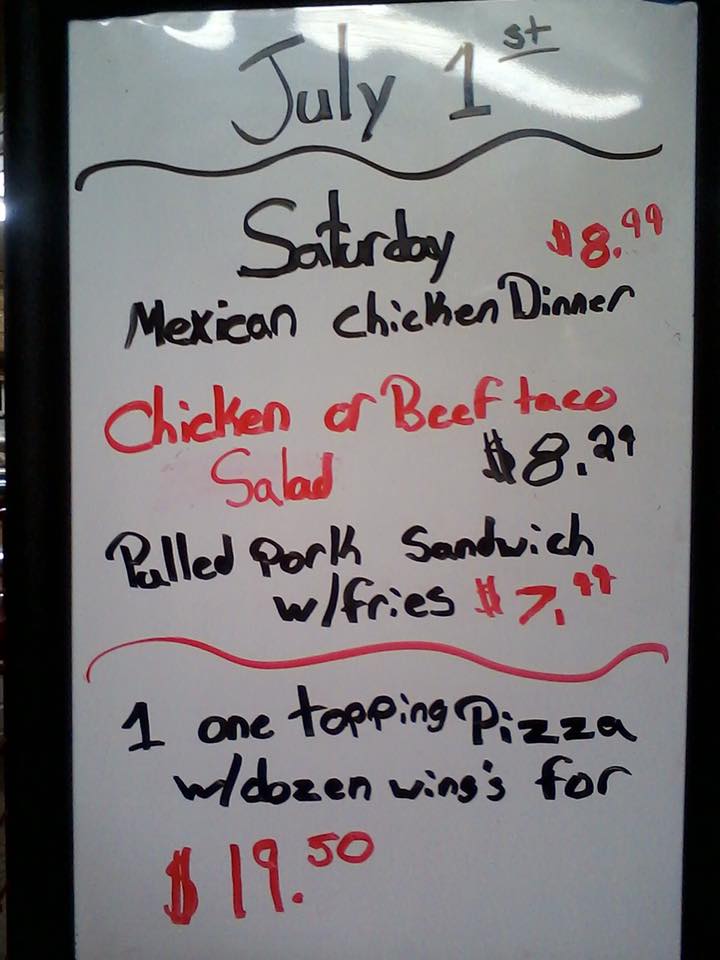 July 1st
Saturday $8.99
Mexican Chicken Dinner
Chicken or Beef taco
Salad $8.29
Pulled Pork Sandwich
w/fries $7.99
1 one topping Pizza
w/dozen wing's for
$19.50